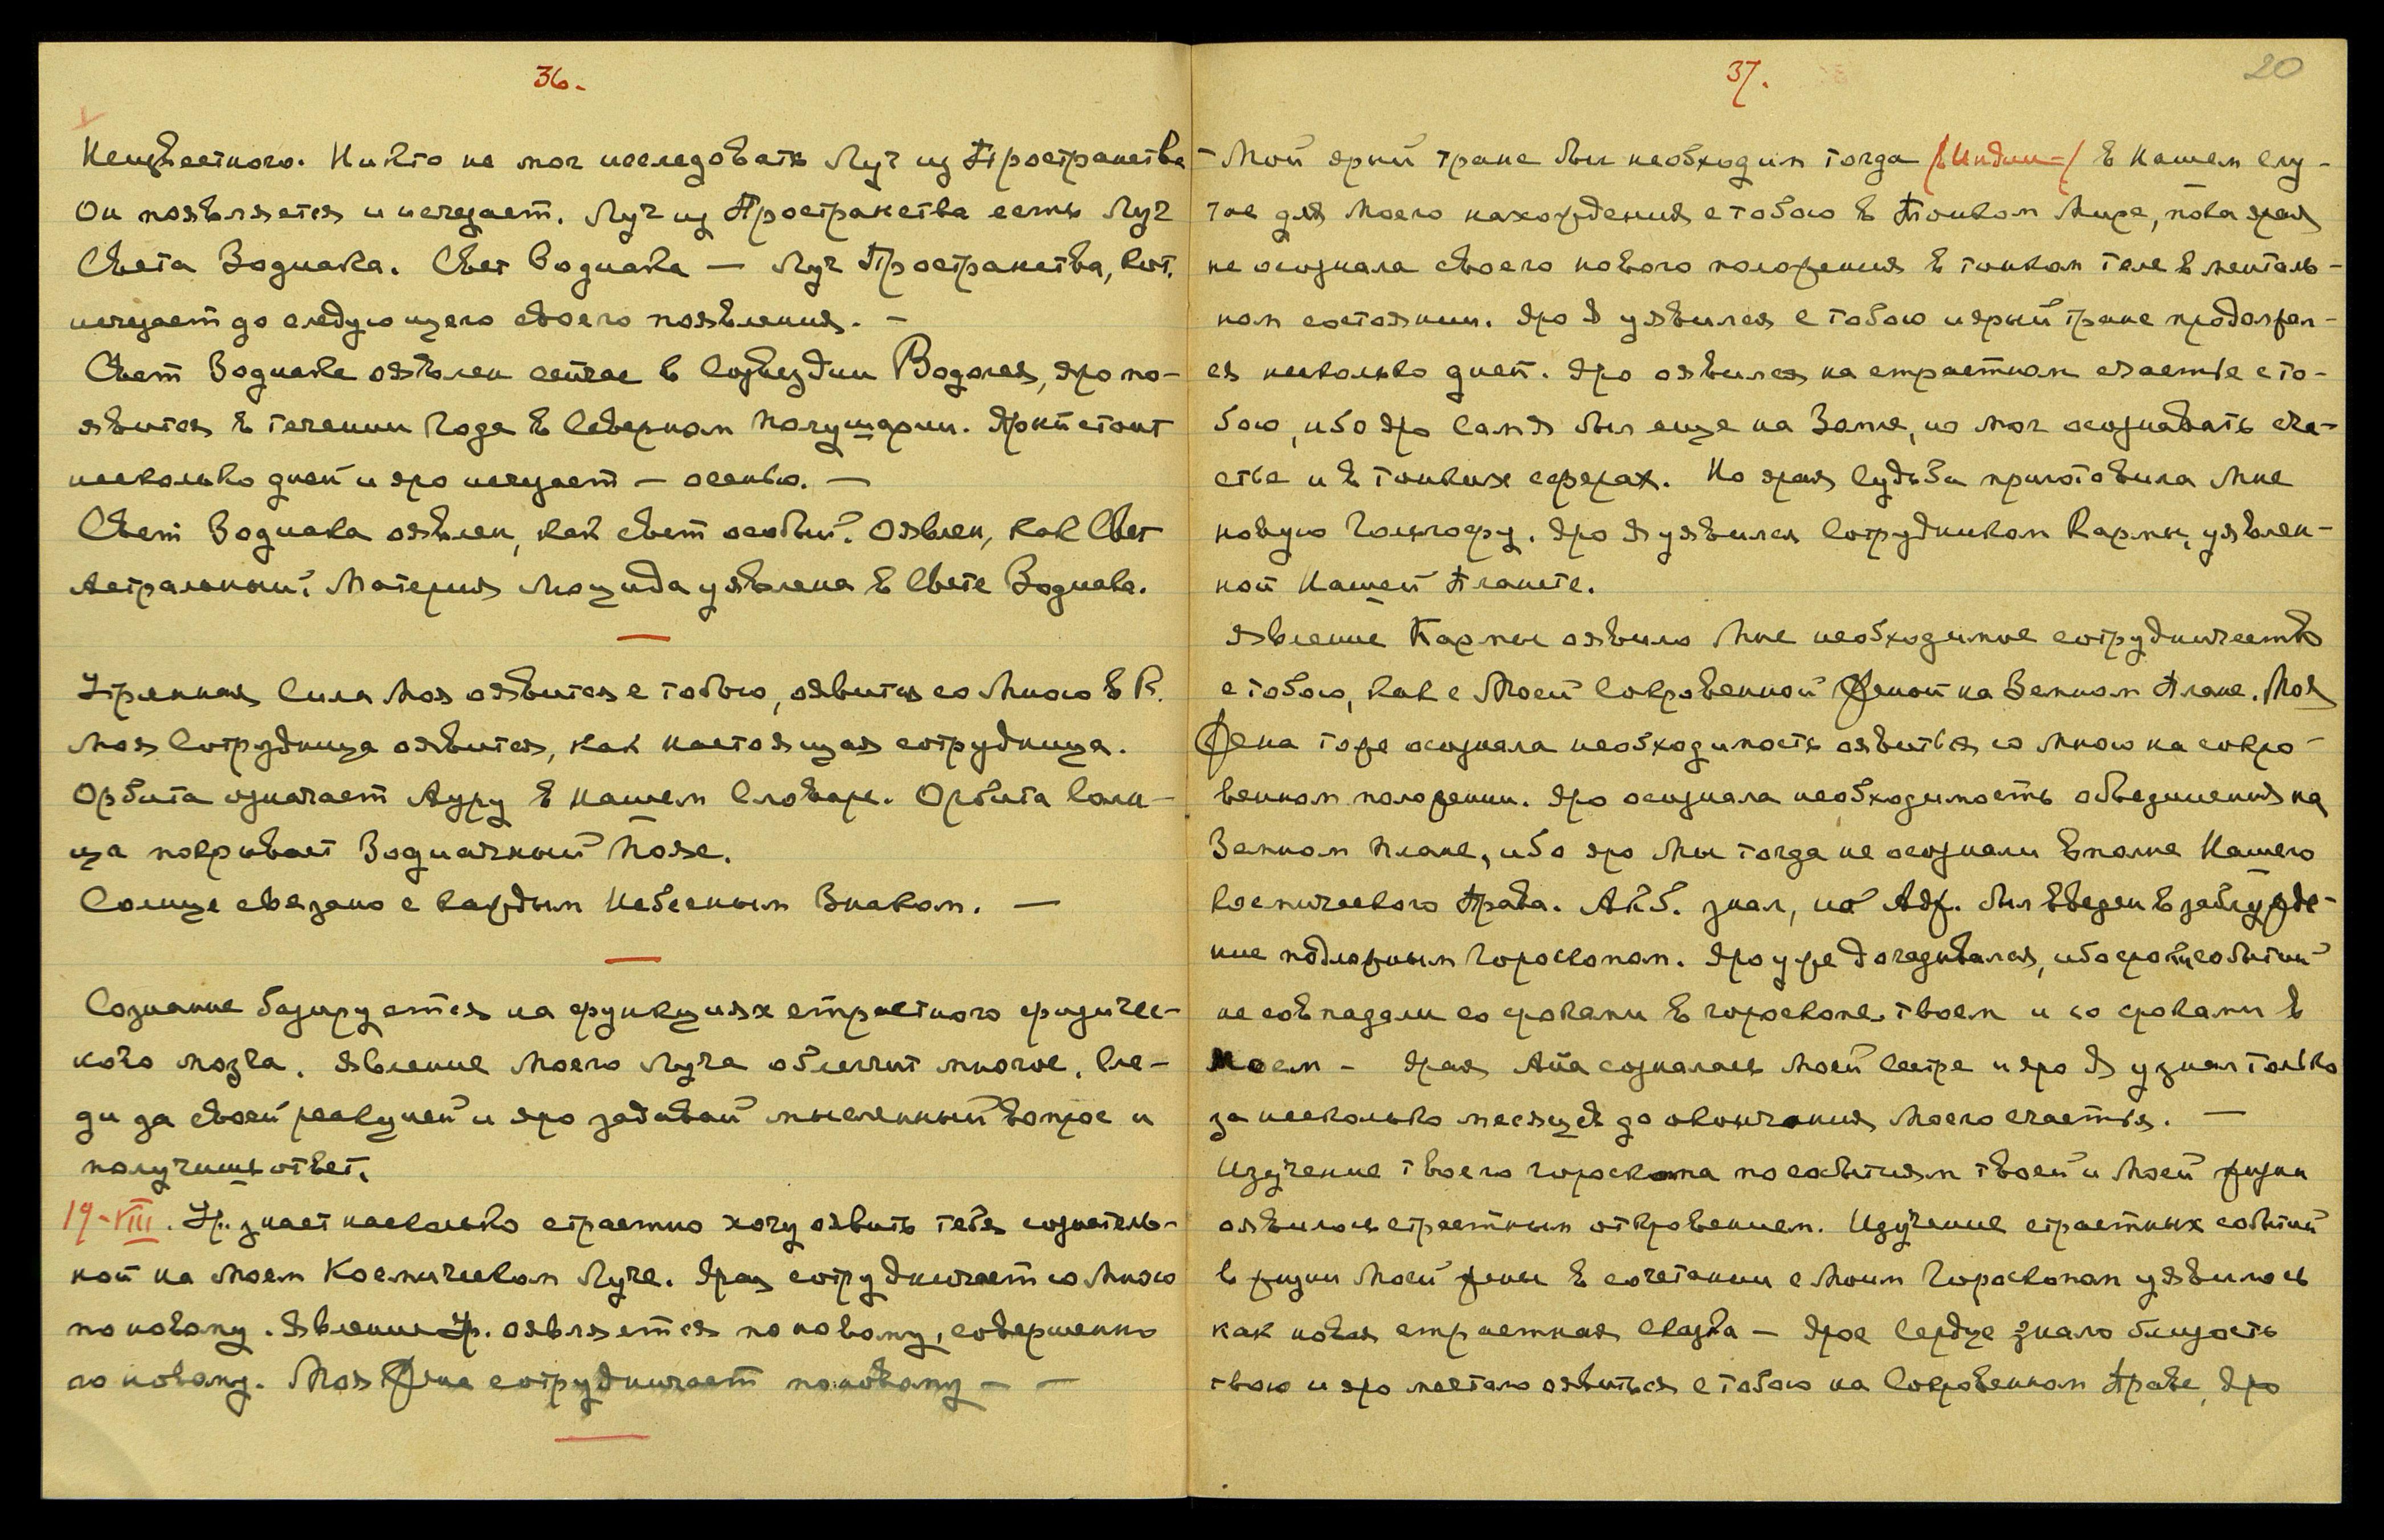 36.
Неизвестного. Никто не мог исследовать Луч из Пространства
Он появляется и исчезает. Луч из Пространства есть Луч
Света Зодиака. Свет Зодиака — Луч Пространства, кот.
исчезает до следующего своего появления. —
Свет Зодиака оявлен сейчас в Созвездии Водолея, яро по-
явится в течении Года в Северном Полушарии. Яркий стоит
несколько дней и яро исчезает — осенью. —
Свет Зодиака оявлен, как свет особый. Оявлен, как Свет
Астральный. Материя Люцида уявлена в Свете Зодиака.
Утренняя Сила Моя оявится с тобою, оявится со Мною в К.
Моя Сотрудница оявится, как настоящая сотрудница.
Орбита означает Ауру в нашем Словаре. Орбита Солн-
ца покрывает Зодиачный Пояс.
Солнце связано с каждым Небесным Знаком. —
Сознание базируется на функциях страстного физичес-
кого мозга. Явление Моего Луча облегчит многое. Сле-
ди за своей реакцией и яро задавай мысленный вопрос и
получишь ответ.
19-VIII. Ур. знает насколько страстно хочу оявить тебя сознатель-
ной на Моем Космическом Луче. Яро сотрудничает со Мною
по новому. Явление Ур. оявляется по новому, совершенно
по новому. Моя Жена сотрудничает по новому — —
37.
20
— Мой ярый транс был необходим тогда /в Индии-/ в нашем слу-
чае для Моего нахождения с тобою в Тонком Мире, пока ярая
не осознала своего нового положения в тонком теле в менталь-
ном состоянии. Яро Я уявился с тобою и ярый транс продолжал-
ся несколько дней. Яро оявился на страстном счастье с то-
бою, ибо яро Сам Я был еще на Земле, но мог осознавать сча-
стье и в тонких сферах. Но ярая Судьба приготовила Мне
новую Голгофу. Яро Я уявился Сотрудником Кармы, уявлен-
ной Нашей Планете.
Явление Кармы оявило Мне необходимое сотрудничество
с тобою, как с Моей Сокровенной Женой на Земном Плане. Моя
Жена тоже осознала необходимость оявиться со Мною на сокро-
венном положении. Яро осознала необходимость объединения на
Земном плане, ибо яро Мы тогда не осознали вполне Нашего
Космического Права. Акб. знал, но Адж. был введен в заблужде-
ние подложным Гороскопом. Яро уже догадывался, ибо сроки событий
не совпадали со сроками в гороскопе твоем и со сроками в
Моем — Ярая Айа созналась Моей Сестре и яро Я узнал только
за несколько месяцев до окончания Моего счастья. —
Изучение твоего гороскопа по событиям твоей и Моей жизни
оявилось страстным откровением. Изучение страстных событий
в жизни Моей жены в сочетании с Моим Гороскопом уявилось
как новая страстная сказка — Ярое Сердце знало близость
твою и яро мечтало оявиться с тобою на Сокровенном Праве, Яро